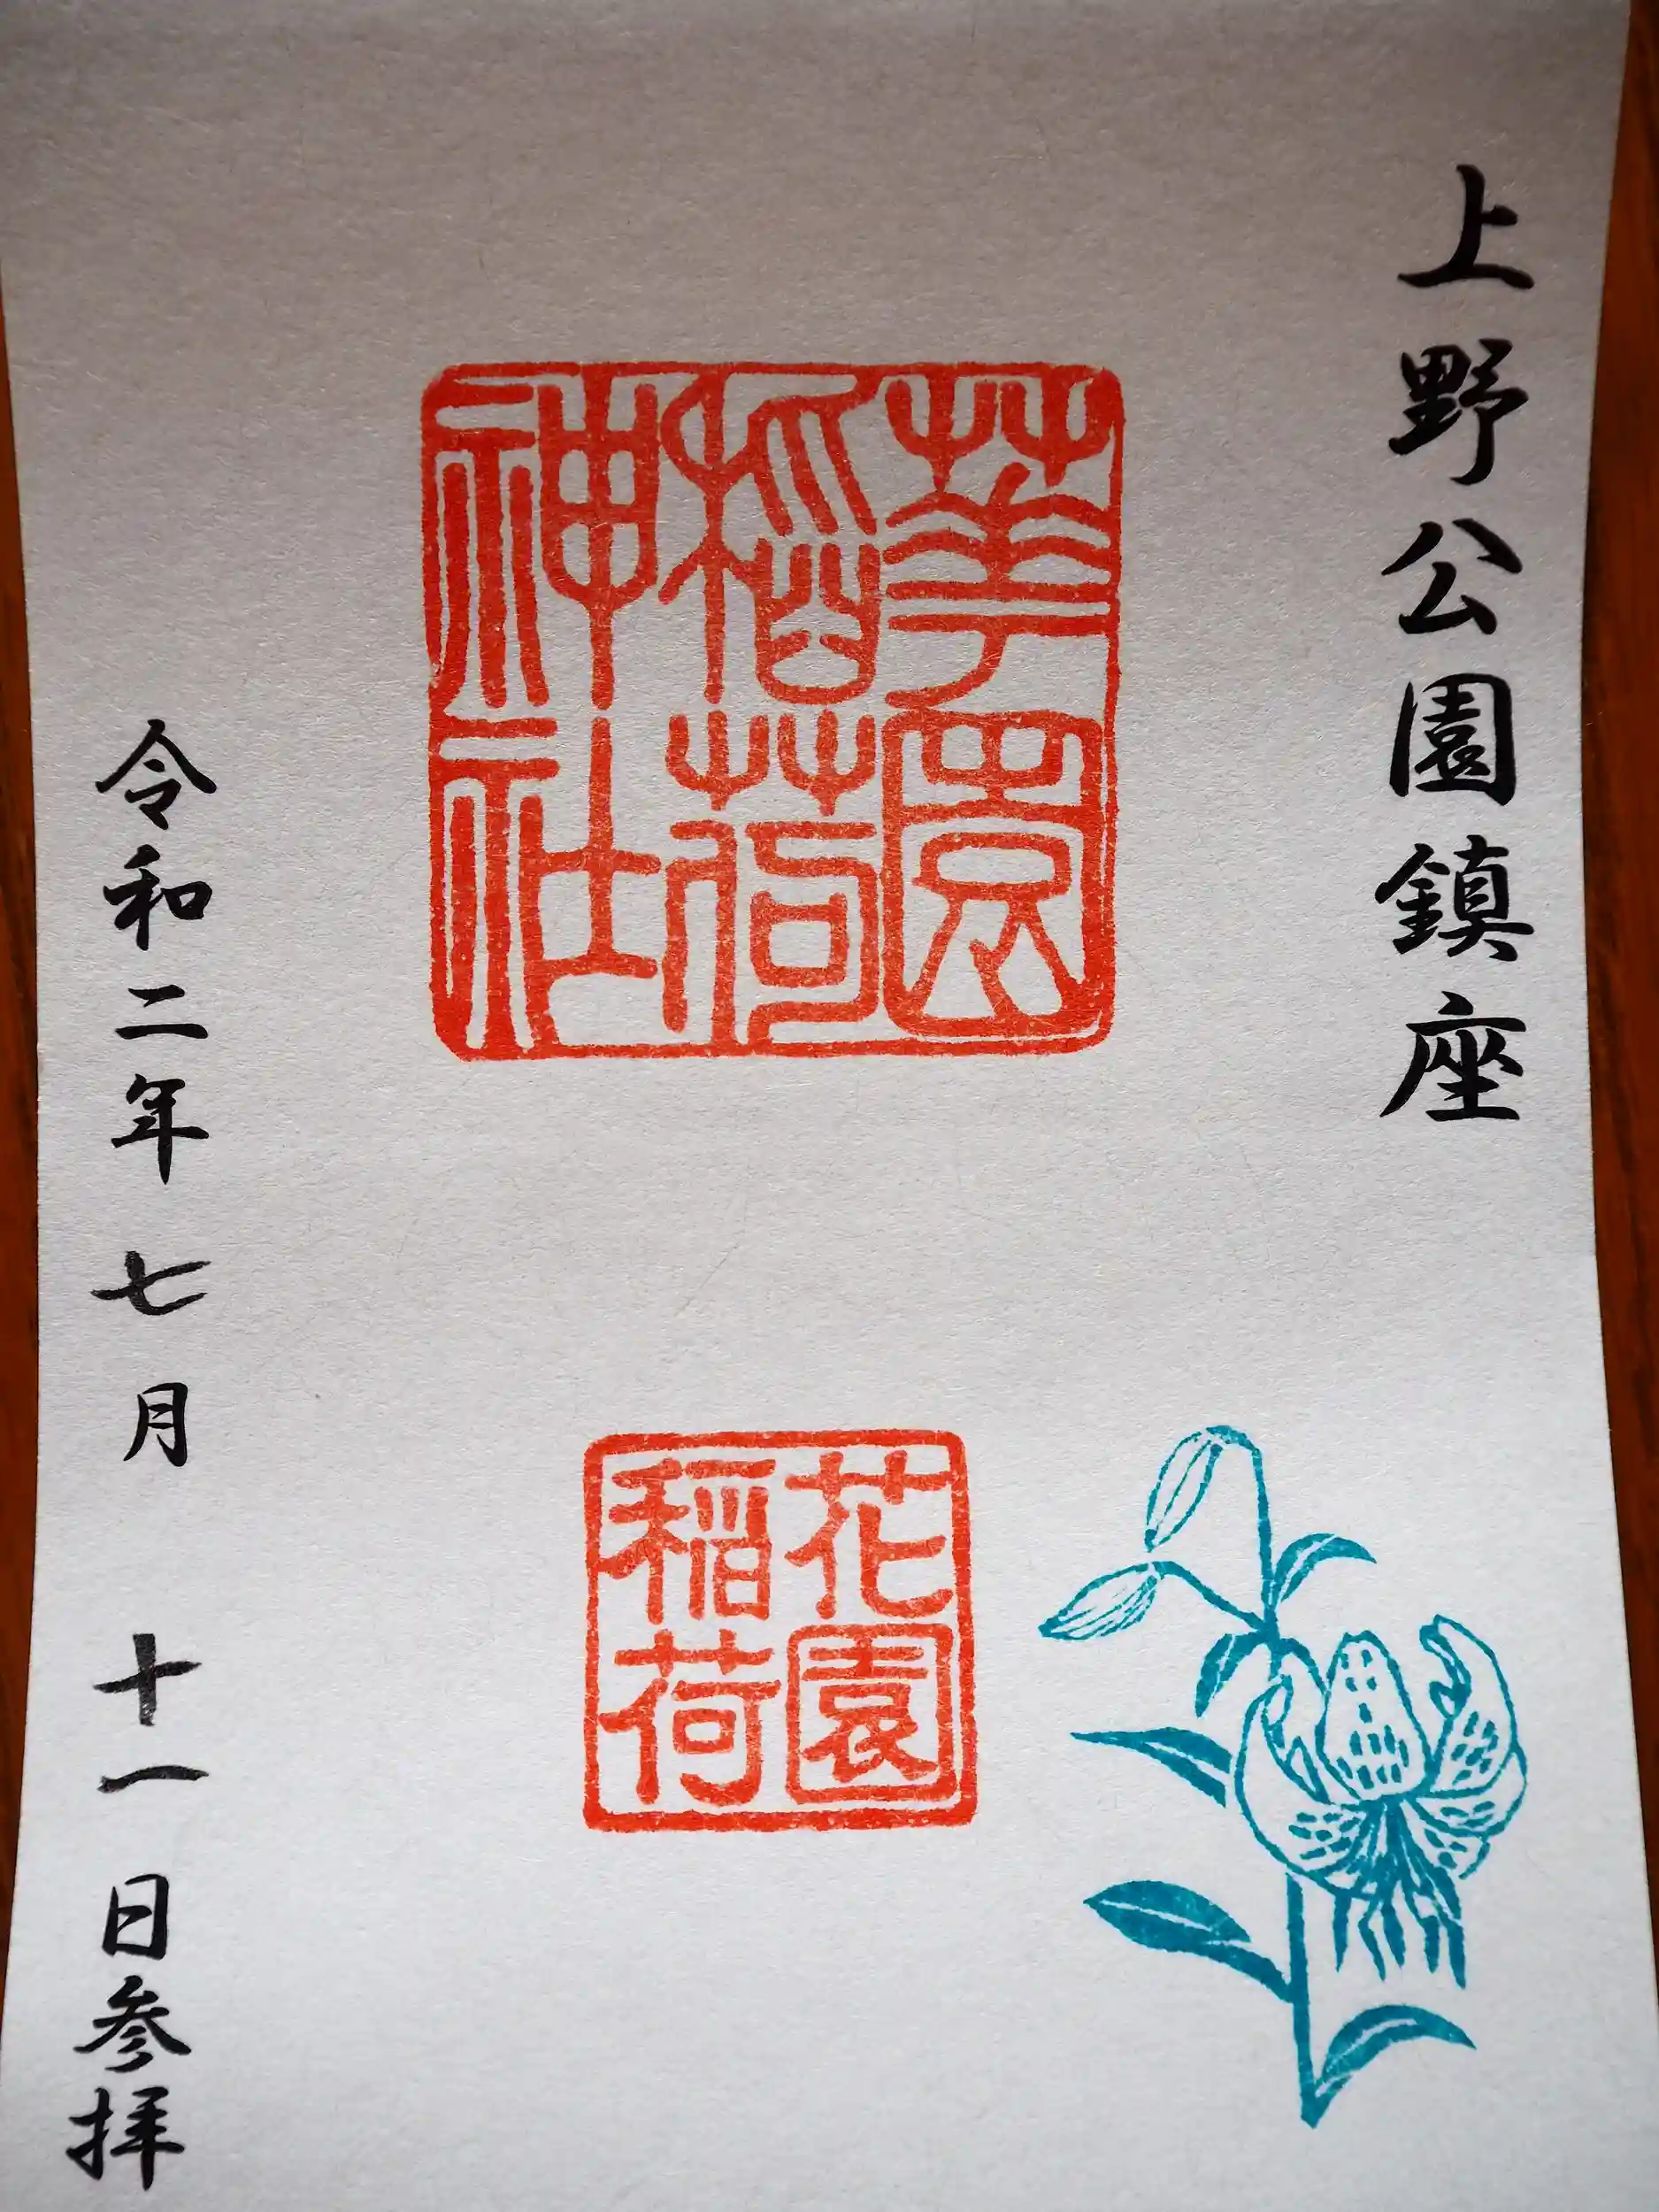 上野公園鎮座
華園
稲荷
神社
花園
稲荷
令和二年七月十一日参拝